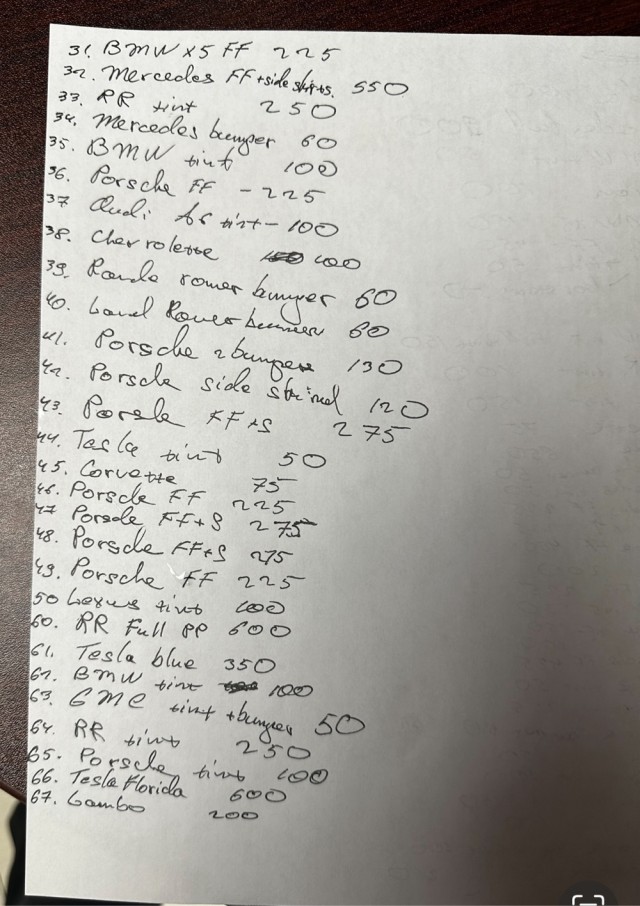 31. BMW x5 FF 225
32. Mercedes FF+side skirts. 550
33. RR tint 250
34. Mercedes bumper 60
35. BMW tint 100
36. Porsche FF - 225
37 Audi tint - 100
38. Chevrolette 100
39. romer bumper 60
40. Land Rover 60
41. Porsche 2 bumper 130
42. Porsche side 120
43. Porsle FF+S 275
44. Tesla tint 50
45. Corvette 75
46. Porsche FF 225
47 Porsche FF+S 275
48. Porsche FF+S 275
49. Porsche FF 225
50 Lexus tint 100
60. RR Full PP 600
61. Tesla blue 350
62. BMW tint 100
63. GMC tint + bumper 50
64. RR tint 250
65. Porsche tint 100
66. Tesla Florida 600
67. Lambo 200